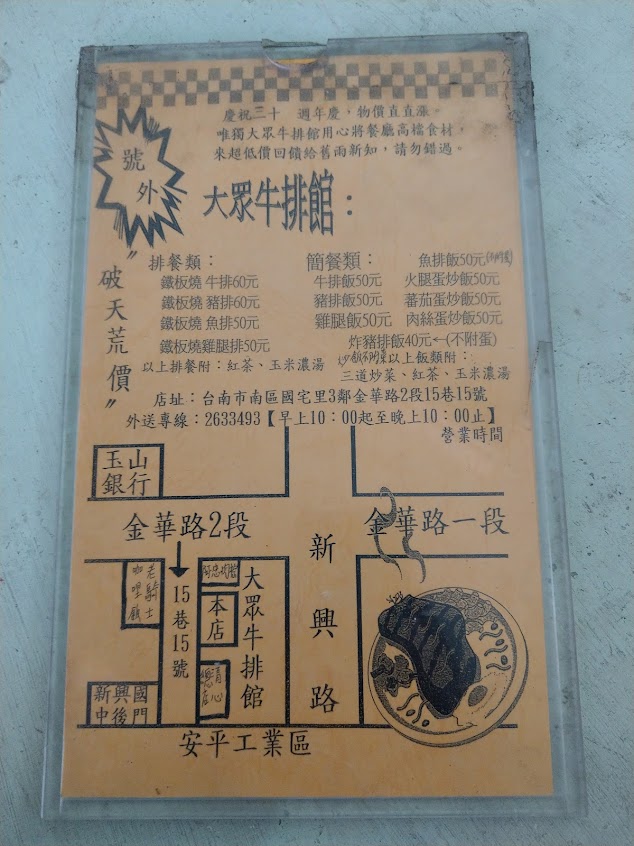 慶祝三十　週年慶，物價直直漲。
唯獨大眾牛排館用心將餐廳高檔食材，
來超低價回饋給舊雨新知，請勿錯過。
號外
大眾牛排館：
〝破天荒價〞
排餐類：
鐵板燒 牛排60元
鐵板燒 豬排60元
鐵板燒 魚排50元
鐵板燒雞腿排50元
以上排餐附：紅茶、玉米濃湯
簡餐類：
牛排飯50元
豬排飯50元
雞腿飯50元
魚排飯50元
火腿蛋炒飯50元
蕃茄蛋炒飯50元
肉絲蛋炒飯50元
炸豬排飯40元←(不附蛋)
以上飯類附：
三道炒菜、紅茶、玉米濃湯
店址：台南市南區國宅里3鄰金華路2段15巷15號
外送專線：2633493【早上10：00起至晚上10：00止】
營業時間
玉山
銀行
金華路2段
金華路一段
新興路
老騎士
咖哩飯
15巷15號
本店
清心
總店
大眾牛排館
新興國
中後門
安平工業區